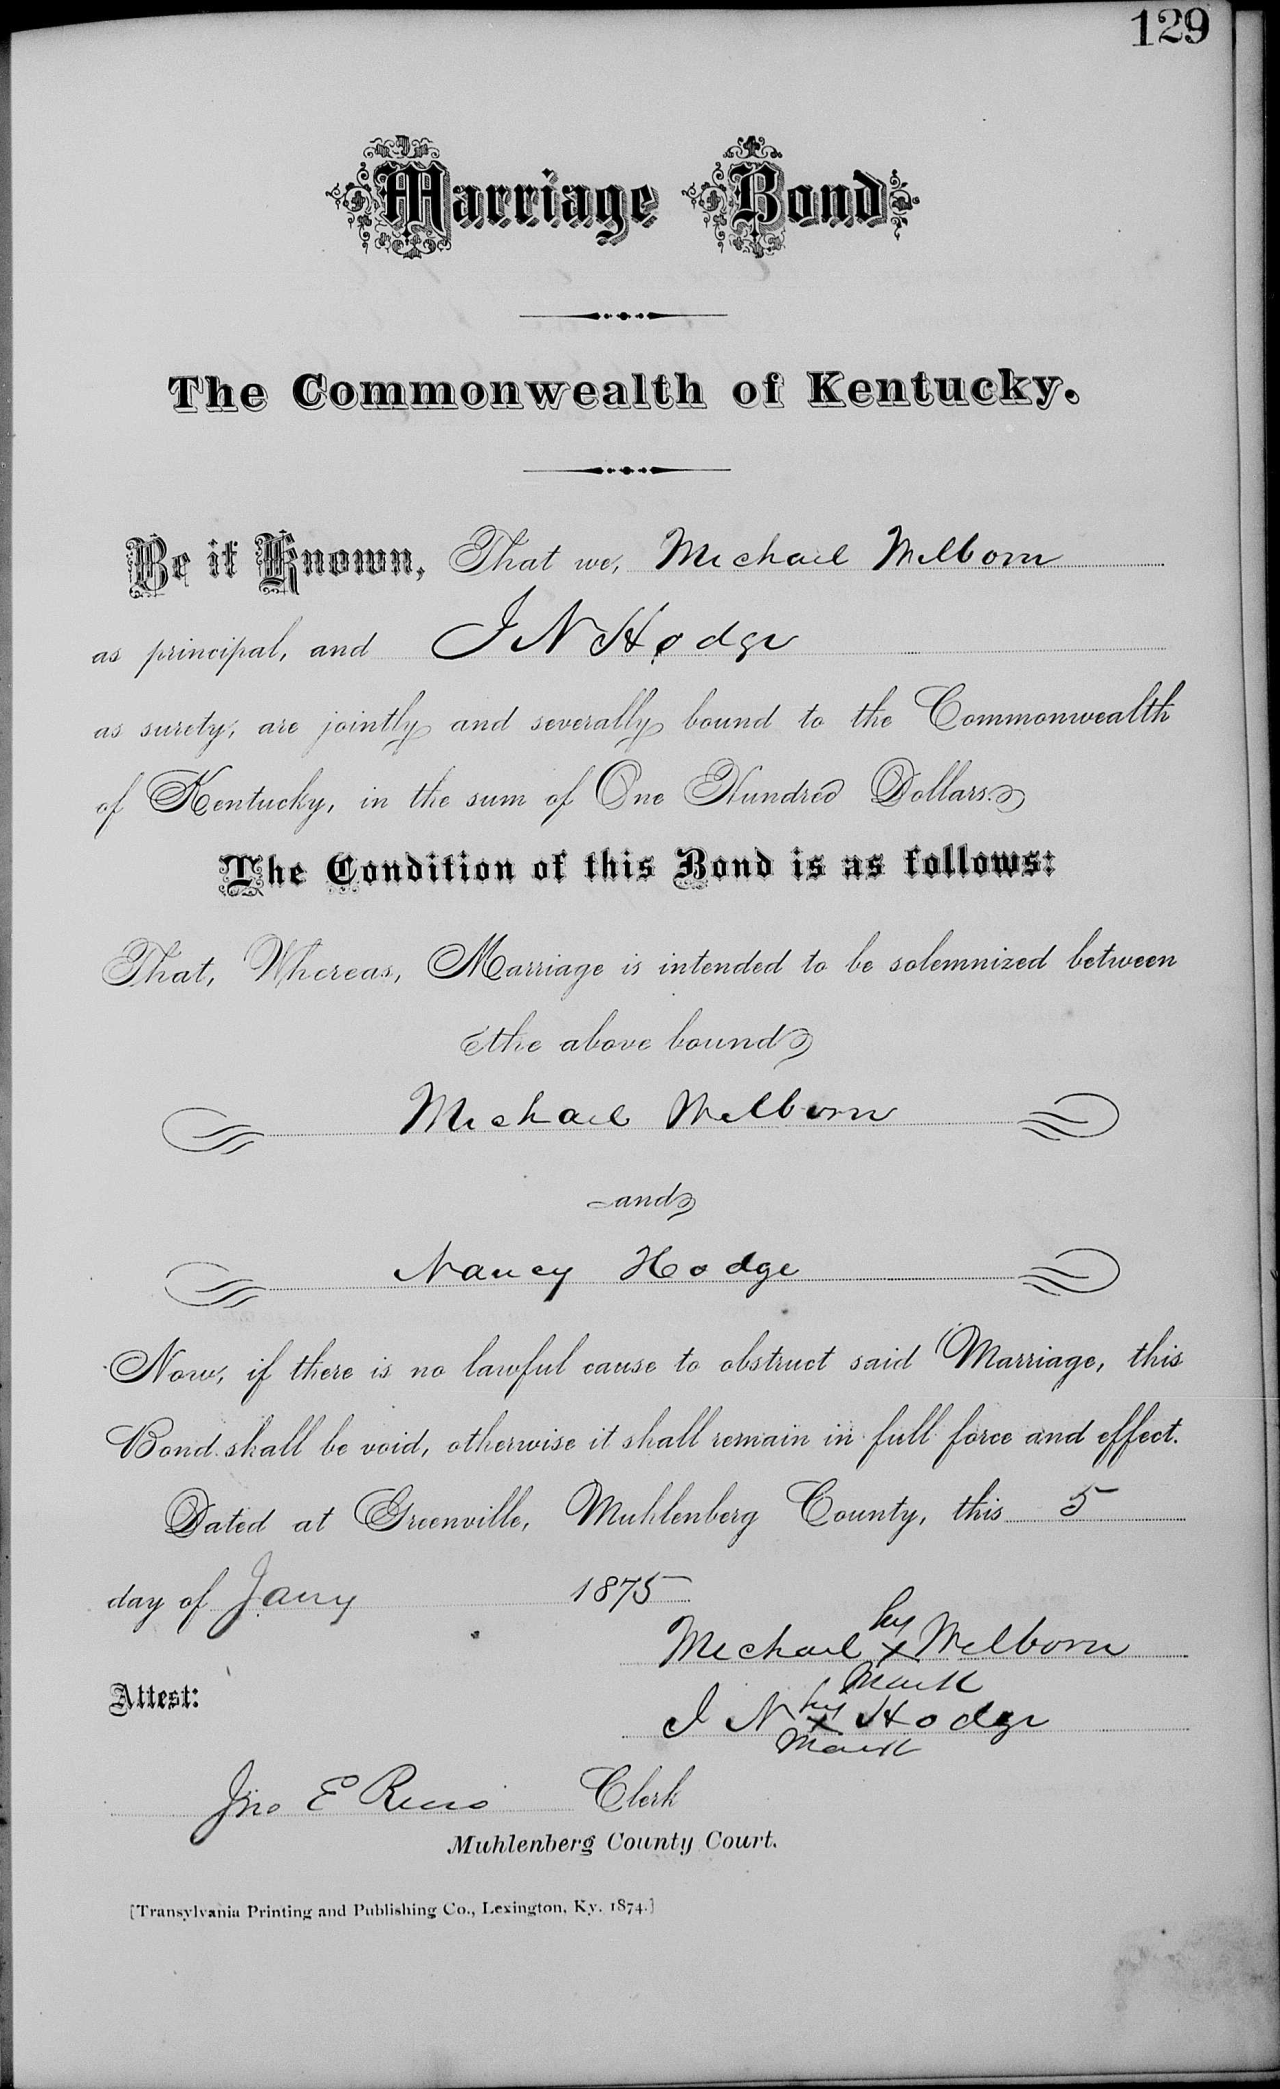 129
Marriage Bond
The Commonwealth of Kentucky.
Be it Known, That we, Michael Welborn
as principal, and J N Hodge
as surety, are jointly and severally bound to the Commonwealth
of Kentucky, in the sum of One Hundred Dollars.
The Condition of this Bond is as follows:
That, Whereas, Marriage is intended to be solemnized between
the above bound
Michael Welborn
and
Nancy Hodge
Now, if there is no lawful cause to obstruct said Marriage, this
Bond shall be void, otherwise it shall remain in full force and effect.
Dated at Greenville, Muhlenberg County, this 5
day of Jany 1875
his
Michael x Welborn
mark
Attest:
his
J N x Hodge
mark
Jno E Reno Clerk
Muhlenberg County Court.
[Transylvania Printing and Publishing Co., Lexington, Ky. 1874.]